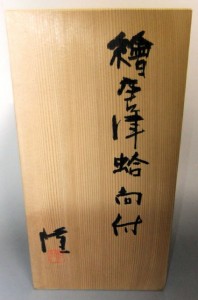 繪唐津蛤向付
隆